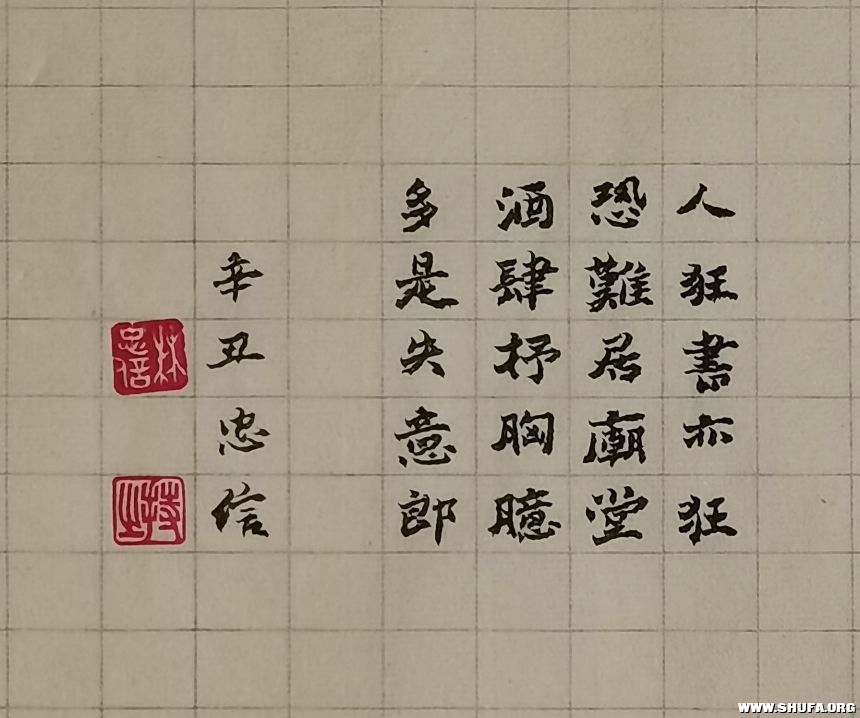 人狂書亦狂
恐難居廟堂
酒肆抒胸臆
多是失意郎
辛丑忠信
林忠信
持之
WWW.SHUFA.ORG